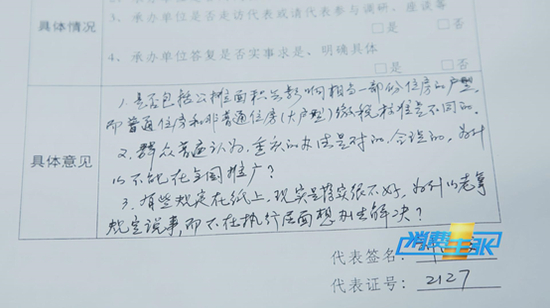 具体情况
3、承办单位是否走访代表或请代表参与调研、座谈等
□是 □否
4、承办单位答复是否实事求是、明确具体
□是 □否
具体意见
1. 是否包括公摊面积,会影响相当一部份住房的户型,
即普通住房和非普通住房(大户型)缴税标准是不同的.
2. 群众普遍认为,重庆的办法是对的,合理的,为什
么不能在全国推广?
3. 有些规定在纸上,现实是落实很不好,为什么老拿
规定说事,而不在执行层面想办法解决?
消费主张
代表签名:
代表证号: 2127